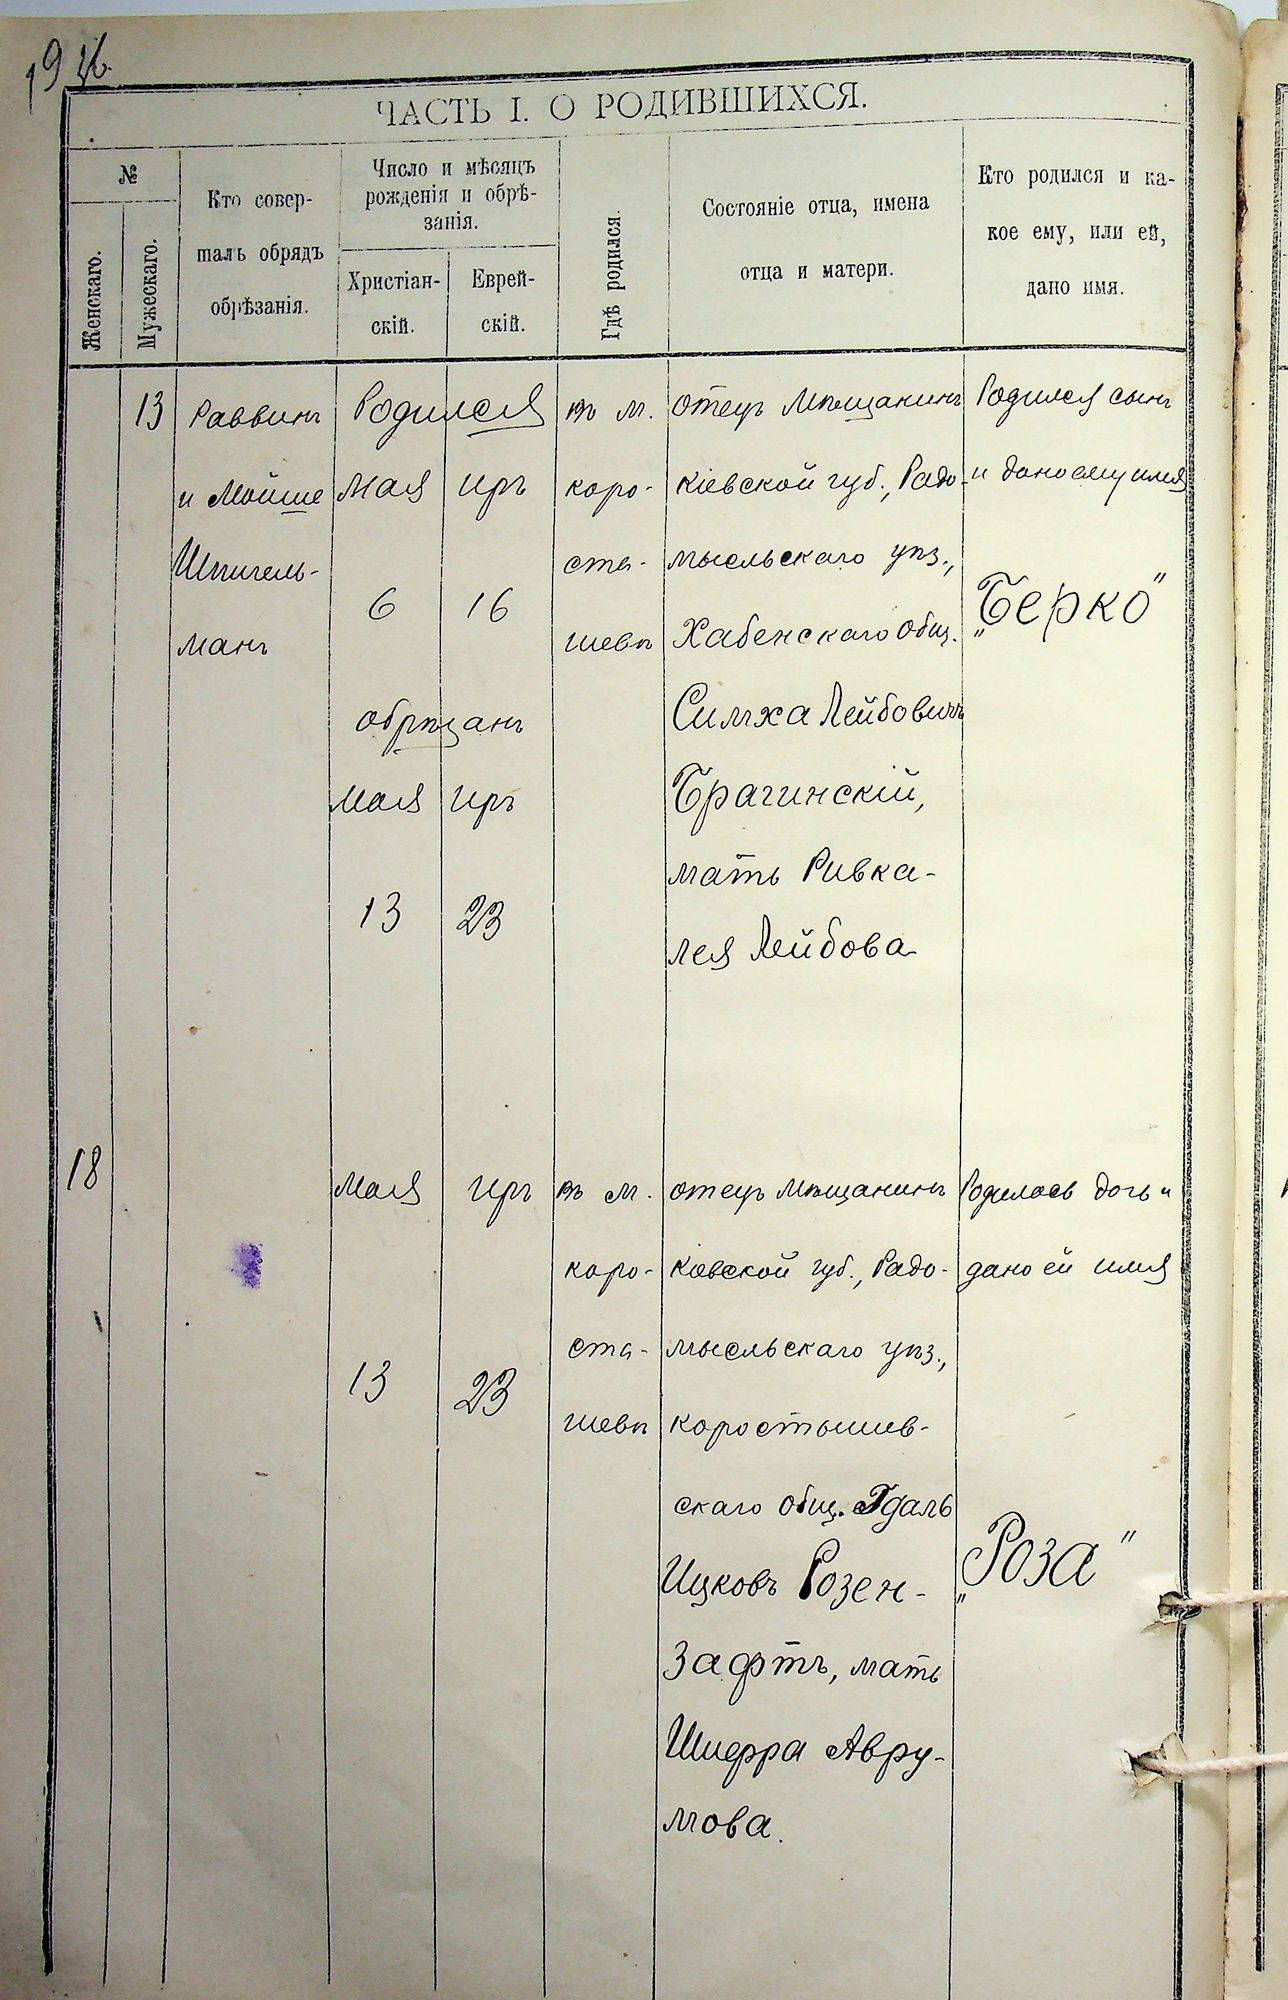 ЧАСТЬ I. О РОДИВШИХСЯ.
№
Женскаго.
Мужескаго.
Кто совер-
шалъ обрядъ
обрѣзанія.
Число и мѣсяцъ
рожденія и обрѣ-
занія.
Христіан-
скій.
Еврей-
скій.
Гдѣ родился.
Состояніе отца, имена
отца и матери.
Кто родился и ка-
кое ему, или ей,
дано имя.
13
Раввинъ
и Мойше
Шпигель-
манъ
Родился
Мая Иръ
6 16
обрѣзанъ
Мая Иръ
13 23
въ м.
Коро-
ста-
шевѣ
отецъ Мѣщанинъ
Кіевской губ., Радо-
мысльскаго уѣз.,
Хабенскаго общ.
Симха Лейбовичъ
Брагинскій,
мать Ривка-
Лея Лейбова
Родился сынъ
и дано ему имя
„Берко"
18
Мая Иръ
13 23
въ м.
Коро-
ста-
шевѣ
отецъ Мѣщанинъ
Кіевской губ., Радо-
мысльскаго уѣз.,
Коростышев-
скаго общ. Гдаль
Ицковъ Розен-
зафтъ, мать
Шифра Авру-
мова.
Родилась дочь и
дано ей имя
„Роза"